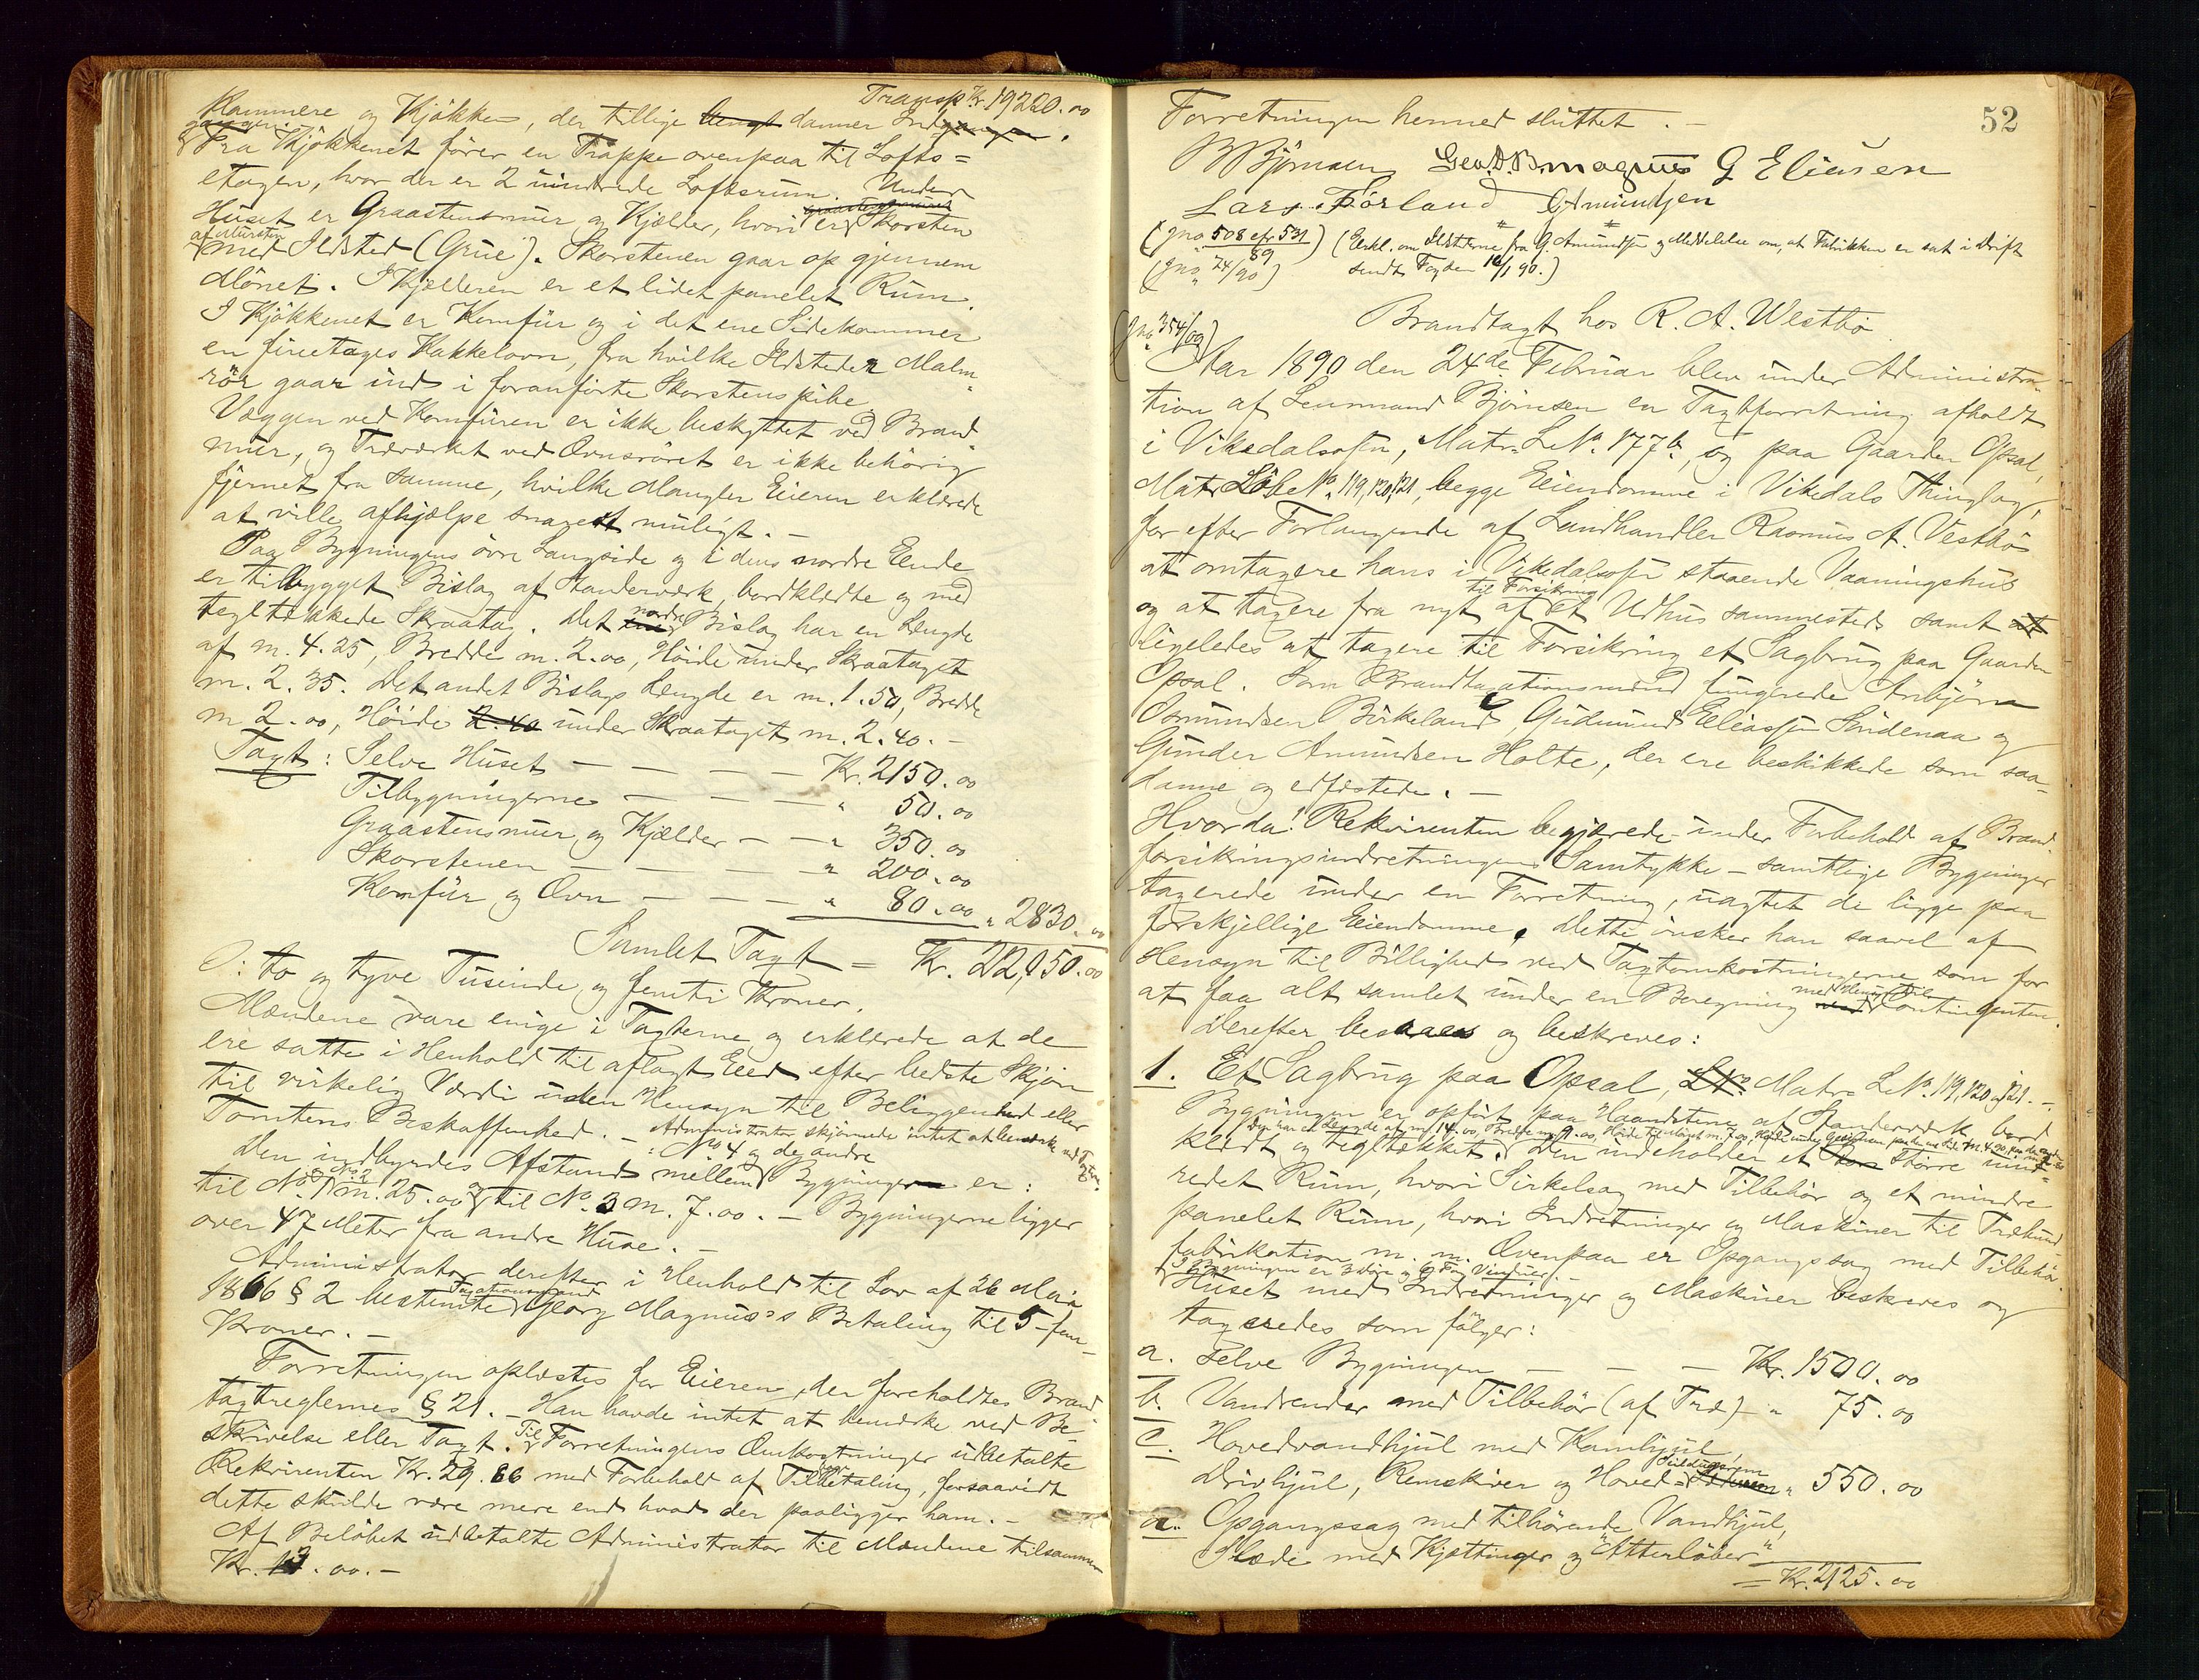 Transp. Kr. 19220.00
Kammere og Kjökken, der tillige danner Ind-
gangen.
Fra Kjökkenet förer en Trappe ovenpaa til Lofts=
etagen, hvor der er 2 uindrede Loftsrum. Under
Huset er Graastensmur og Kjælder, hvori er Skorsten
af Mursten
med Ildsted (Grue). Skorstenen gaar op gjennem
Mönet. I Kjælderen er et lidet panelet Rum.
I Kjökkenet er Komfür og i det ene Sidekammer
en fireetages Kakkelovn, fra hvilke Ildsteder Malm-
rör gaar ind i foranförte Skorstenspibe.
Væggen ved Komfüren er ikke beskyttet ved Brand-
mur, og Træværket ved Ovnsröret er ikke behörig
fjernet fra samme, hvilke Mangler Eieren erklærede
at ville afhjælpe snarest muligt. -
Paa Bygningens övre Langside og i dens nordre Ende
er tilbygget Bislag af Standerværk, bordklædte og med
tegltækkede Skraatag. Det nordre Bislag har en Længde
af m. 4.25, Bredde m. 2.00, Höide under Skraataget
m. 2.35. Det andet Bislags Længde er m. 1.50, Bredde
m 2.00, Höide 2.40 under Skraataget m. 2.40. -
Taxt: Selve Huset - - - - - Kr. 2150.00
Tilbygningerne - - - - " 50.00
Graastensmur og Kjælder - - " 350.00
Skorstenen - - - - - " 200.00
Komfür og Ovn - - - - " 80.00 " 2830.00
Samlet Taxt = Kr. 22,050.00
ɔ: to og tyve Tusinde og femti Kroner.
Mændene vare enige i Taxterne og erklærede at de
ere satte i Henhold til aflagt Eed efter bedste Skjön
til virkelig Værdi uden Hensyn til Beliggenhed eller
Tomtens Beskaffenhed. - Administrator skjönnede intet at bemærke ved Taxten.
Den indbyrdes Afstand mellem No 4 og de andre Bygninger er:
til No. 1 og No 2 m. 25.00 og til No. 3 m. 7.00. - Bygningerne ligger
over 47 Meter fra andre Huse. -
Administrator derefter i Henhold til Lov af 26 Mai
1866 § 2 bestemte Taxationsmand Georg Magnus's Betaling til 5 - fem -
Kroner. -
Forretningen oplæstes for Eieren, der foreholdtes Brand-
taxtreglernes § 21. - Han havde intet at bemærke ved Be-
skrivelse eller Taxt. Til Forretningens Omkostninger udbetalte
Rekvirenten Kr. 29.66 med Forbehold af Tilbagebetaling, forsaavidt
dette skulde være mere end hvad der paaligger ham. -
Af Belöbet udbetalte Administrator til Mændene tilsammen
Kr. 13.00. -
52
Forretningen hermed sluttet. -
B Björnsen Geo. D. B. Magnus G Eliasen
LarsFörland G Amundsen
(Jno 508 cfr 531/89) (Erkl. om Ildstederne fra G. Amundsen og Meddelelse om, at Fabrikken er sat i Drift
(Jno 24/90) sendt Fogden 16/1 90.)
Brandtaxt hos R. A. Westbö
(Jno 354/09)
Aar 1890 den 24de Februar blev under Administra-
tion af Lensmand Björnsen en Taxtforretning afholdt
i Vikedalsosen, Matr. L. No. 177b, og paa Gaarden Opsal,
Matr Löbe No. 119, 120, 121, begge Eiendomme i Vikedals Thinglag,
for efter Forlangende af Landhandler Rasmus A. Vestbö
at omtaxere hans i Vikedalsosen staaende Vaaningshus
og at taxere fra nyt af til Forsikring et Udhus sammesteds samt at
ligeledes at taxere til Forsikring et Sagbrug paa Gaarden
Opsal. Som Brandtaxationsmænd fungerede Anbjörn
Osmundsen Birkeland, Gudmund Eliassen Söndenaa og
Gunder Amundsen Holte, der ere beskikkede som saa-
danne og edfæstede. -
Hvorda! Rekvirenten begjærede - under Forbehold af Brand-
forsikringsindretningens Samtykke - samtlige Bygninger
taxerede under en Forretning, uagtet de ligge paa
forskjellige Eiendomme. Dette önsker han saavel af
Hensyn til Billighed ved Taxtomkostningerne som for
at faa alt samlet under en Beregning med Hensyn til Contingenten.
Derefter besaaes og beskreves:
1. Et Sagbrug paa Opsal, Matr. L. No. 119, 120 og 121. -
Bygningen er opfört paa Haandstene af Standerværk, bord-
klædt og tegltækket. Den indeholder et större uind-
redet Rum, hvori Sirkelsag med Tilbehör og et mindre
panelet Rum, hvori Indretninger og Maskiner til Træbund-
fabrikation m. m. Ovenpaa er Opgangssag med Tilbehör.
I Bygningen er 3 Döre og 6 Fag Vinduer. -
Huset med Indretninger og Maskiner beskreves og
taxeredes som fölger:
a. Selve Bygningen - - - Kr. 1500.00
b. Vandrender med Tilbehör (af Træ) - " 75.00
c. Hovedvandhjul med Kamhjul,
Drivhjul, Remskiver og Hoved- " 550.00
d. Opgangssag med tilhörende Vandhjul,
Slæde med Kjettinger og "Atterlöber"
= Kr. 2125.00